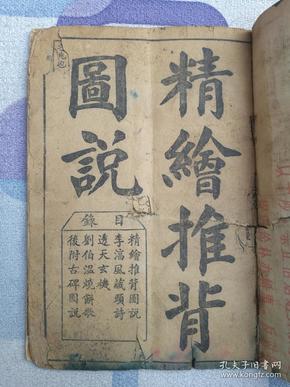 精繪推背
圖說
目錄
精繪推背圖說
李淳風藏頭詩
透天玄機
劉伯溫燒餅歌
後附古碑圖說
孔夫子旧书网